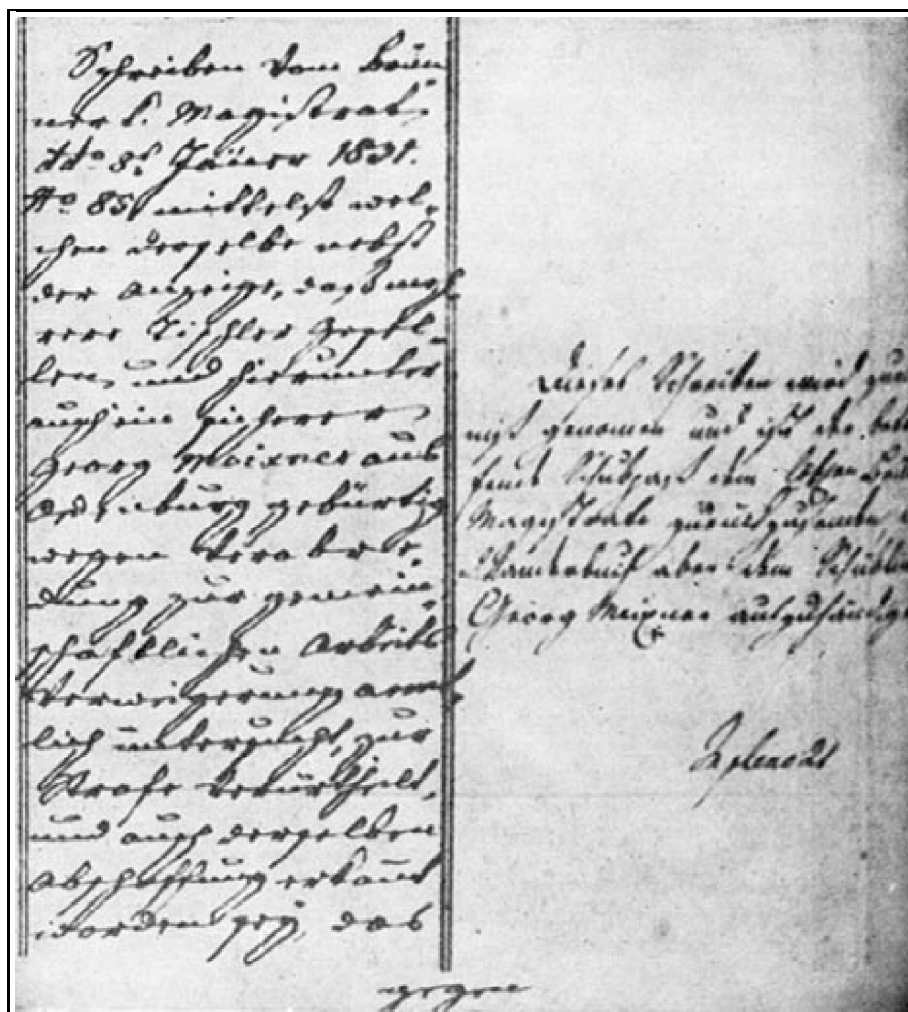 Schreiben vom Brün-
ner k. Magistrat
ddo 8t Jäner 1831.
No 85, mittelst wel-
chen derselbe nebst
der Anzeige, daß meh-
rere Tischler Gesel-
len, und hierunter
auch ein sicherer
Georg Meixner aus
Ödenburg gebürtig
wegen Verabre-
dung zur gemein-
schaftlichen Arbeits
Verweigerung aemt-
lich untersucht, zur
Strafe verurtheilt,
und auch derselben
Abschaffung erkannt
worden sey, das
gegen
Dieses Schreiben wird zur
niß genomen und ist der
fende Schubpaß dem
Magistrate zurückzusenden,
Wanderbuch aber dem Schübling
Georg Meixner auszuhändigen